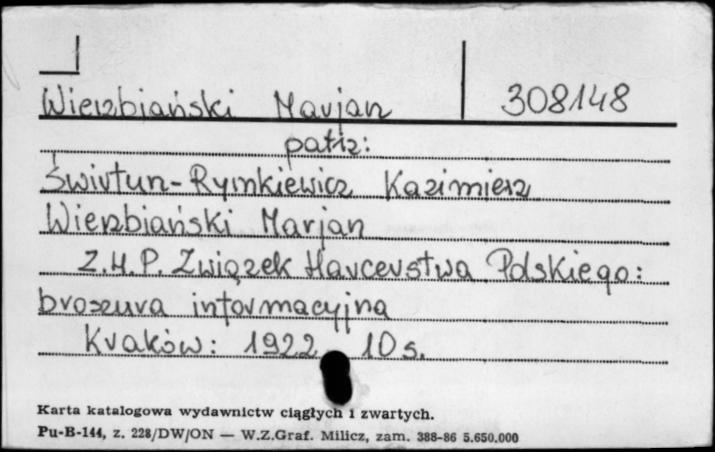 Wierzbiański Marjan 308148
patrz:
Świrtun-Rymkiewicz Kazimierz
Wierzbiański Marjan
Z.H.P. Związek Harcerstwa Polskiego:
broszura informacyjna
Kraków: 1922 10 s.
Karta katalogowa wydawnictw ciągłych i zwartych.
Pu-B-144, z. 228/DW/ON — W.Z.Graf. Milicz, zam. 388-86 5.650.000